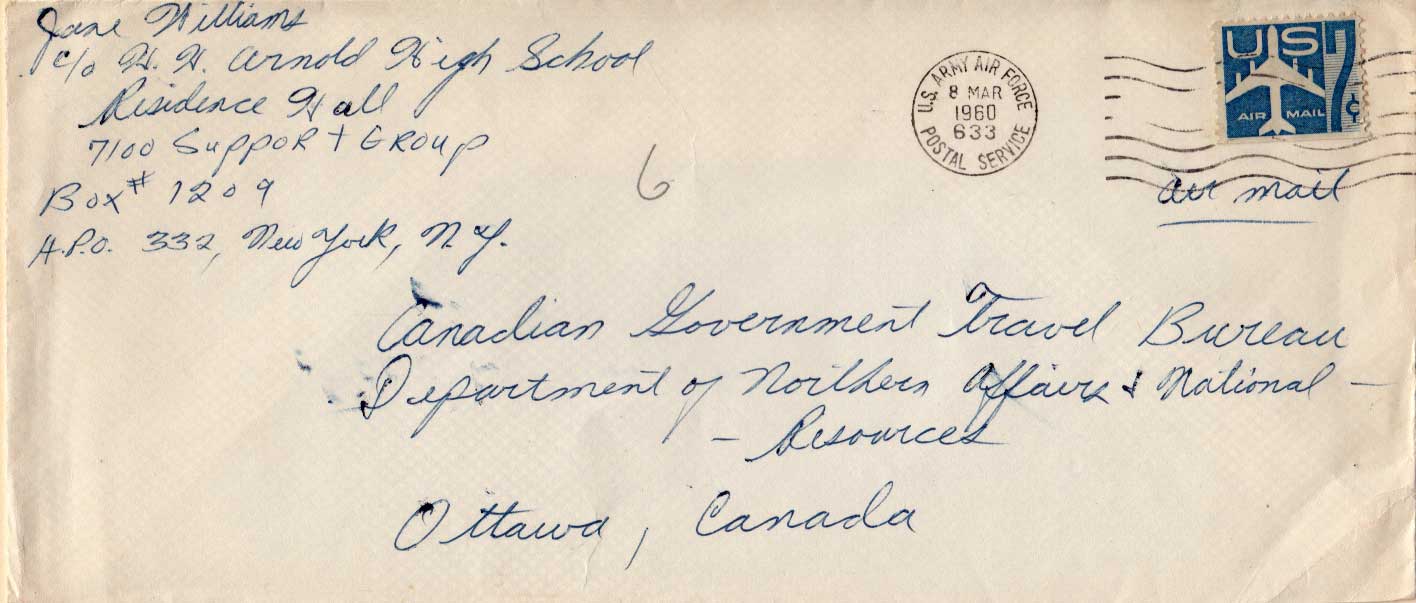 Jane Williams
c/o H. H. Arnold High School
Residence Hall
7100 Support Group
Box # 1209
A.P.O. 332, New York, N.Y.
6
U.S. ARMY AIR FORCE
8 MAR
1960
633
POSTAL SERVICE
US
7¢
AIR MAIL
air mail
Canadian Government Travel Bureau
Department of Northern Affairs & National -
- Resources
Ottawa, Canada